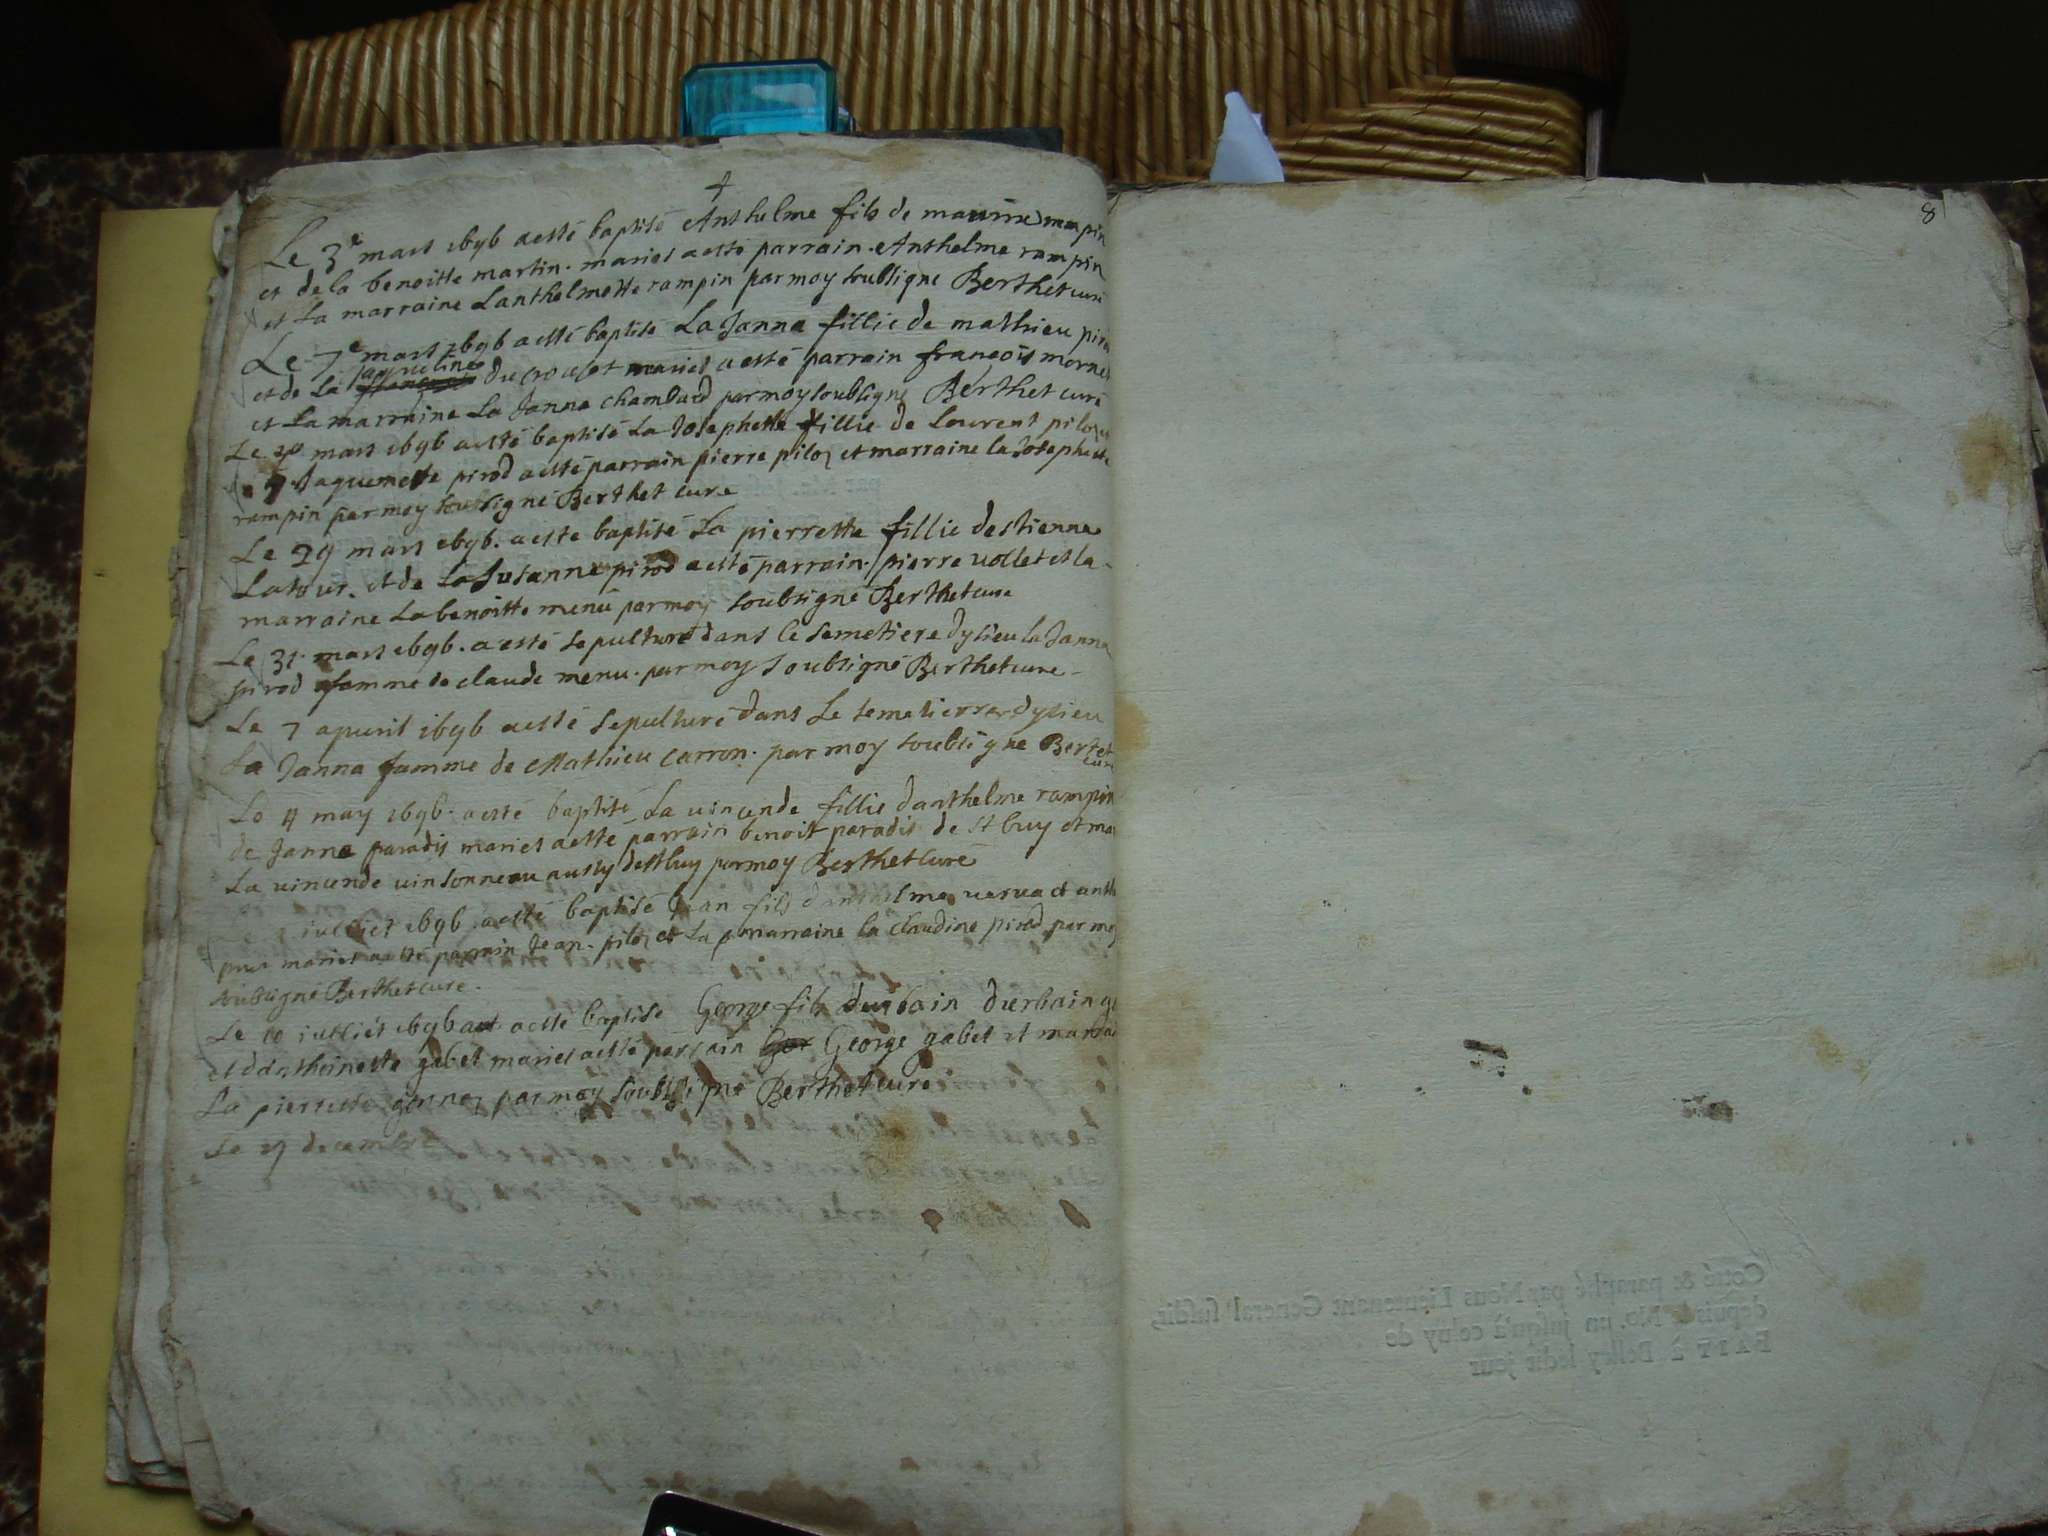 Le 3e mars 1696 a esté baptisé Anthelme fils de maurire rampin
et de la benoitte martin. mariés a esté parrain. Anthelme rampin
et La marraine Lanthelmette rampin par moy soubsigne Berthet curé
Le 7e mars 1696 a esté baptisé La Janna fillie de mathieu
jaqueline
et de La ducrouset mariés a esté parrain françois
et La marraine La Janna chambard par moy soubsigne Berthet curé
Le mars 1696 a esté baptisé La Josephette fillie de Lourent piloz
Jaquemette pirod a esté parrain pierre piloz et marraine la Josephette
rampin par moy soubsigné Berthet cure
Le 29 mars 1696. a este baptisé La pierrette fillie destienne
Latour. et de La Susanne pirod a esté parrain. pierre vollet et la
marraine La benoitte menu par moy soubsigné Berthet cure
Le 31. mars 1696. a esté sepulturé dans le semetiere dysieu la Janna
pirod famme de claude menu. par moy soubsigné Berthet cure
Le 7 apvril 1696 a esté sepulturé dans Le semetierre dysieu
La Janna famme de Mathieu carron. par moy soubsigne Bertet
cure
Le 4 may 1696. a esté baptisé La vincende fillie danthelme rampin
de Janna paradis mariés a esté parrain benoit paradis de st buy et ma
La vincende vinsonneau aussy de st buy par moy Berthet Curé
julliet 1696. a esté baptisé Jean fils danthelme et anth
mariés a esté parrain Jean. piloz et La marraine la claudine pirod par moy
soubsigné Berthet cure.
Le 10 julliet 1696 a esté baptisé George fils durbain durbain
et danthoinette gabet mariés a esté parrain George gabet et marra
La pierrette gonnez par moy soubsigné Berthet curé
Le 27 decembr
8
Cotté & paraphé par Nous Lieutenant General susdit,
depuis le No. un jusqu'à celuy de
FAIT à Belley ledit jour